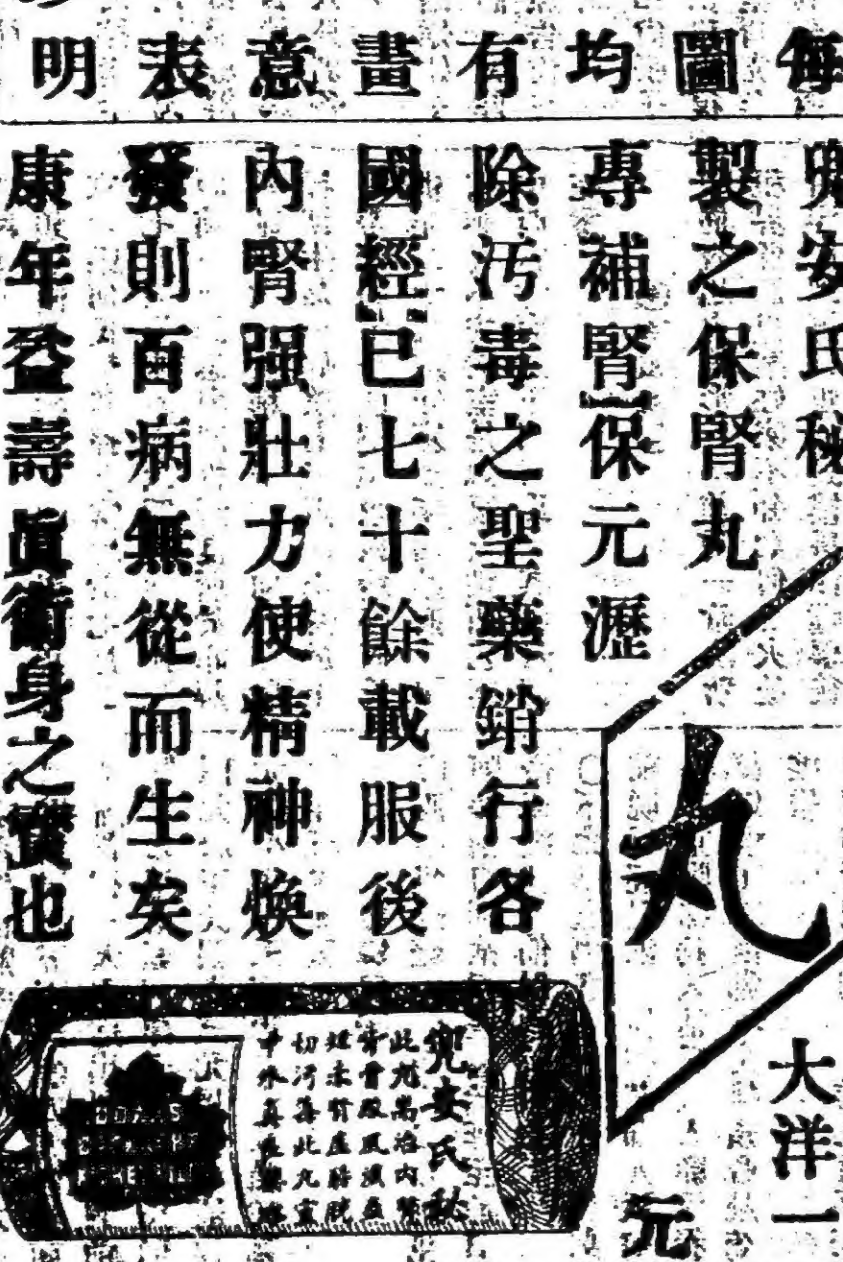 每圖均有畫意表明
兜安氏秘
製之保腎丸
專補腎保元瀝
除污毒之聖藥銷行各
國經已七十餘載服後
內腎强壯力使精神煥
發則百病無從而生矣
康年益壽眞衛身之寶也
丸
大洋一
元
兜安氏秘